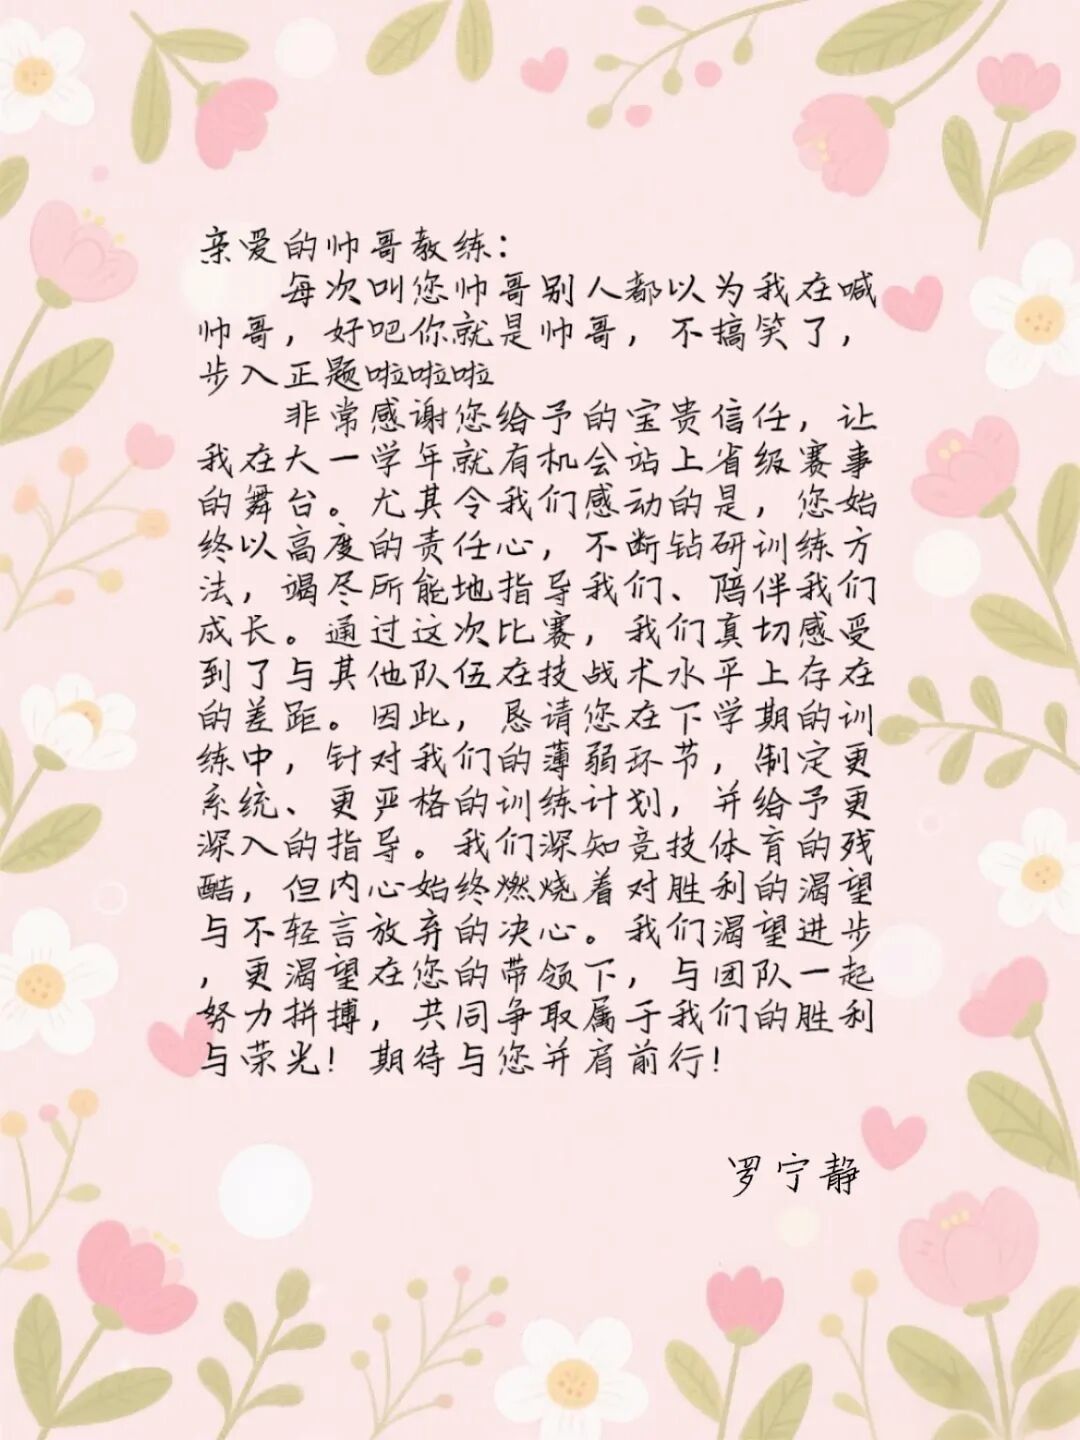 亲爱的帅哥教练：
每次叫您帅哥别人都以为我在喊
帅哥，好吧你就是帅哥，不搞笑了，
步入正题啦啦啦
非常感谢您给予的宝贵信任，让
我在大一学年就有机会站上省级赛事
的舞台。尤其令我们感动的是，您始
终以高度的责任心，不断钻研训练方
法，竭尽所能地指导我们、陪伴我们
成长。通过这次比赛，我们真切感受
到了与其他队伍在技战术水平上存在
的差距。因此，恳请您在下学期的训
练中，针对我们的薄弱环节，制定更
系统、更严格的训练计划，并给予更
深入的指导。我们深知竞技体育的残
酷，但内心始终燃烧着对胜利的渴望
与不轻言放弃的决心。我们渴望进步
，更渴望在您的带领下，与团队一起
努力拼搏，共同争取属于我们的胜利
与荣光！期待与您并肩前行！
罗宁静